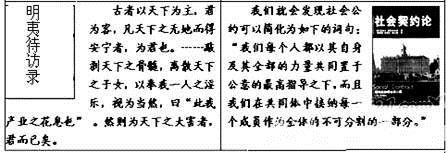 明夷待访录
古者以天下为主,君
为客,凡天下之无地而得
安宁者,为君也。------敲
剥天下之骨髓,离散天下
之子女,以奉我一人之淫
乐,视为当然,曰“此我
产业之花息也”。然则为天下之大害者,
君而已矣。
我们就会发现社会公
约可以简化为如下的词句:
“我们每个人都以其自身
及其全部的力量共同置于
公意的最高指导之下,而且
我们在共同体中接纳每一
个成员作为全体的不可分割的一部分。”
社会契约论